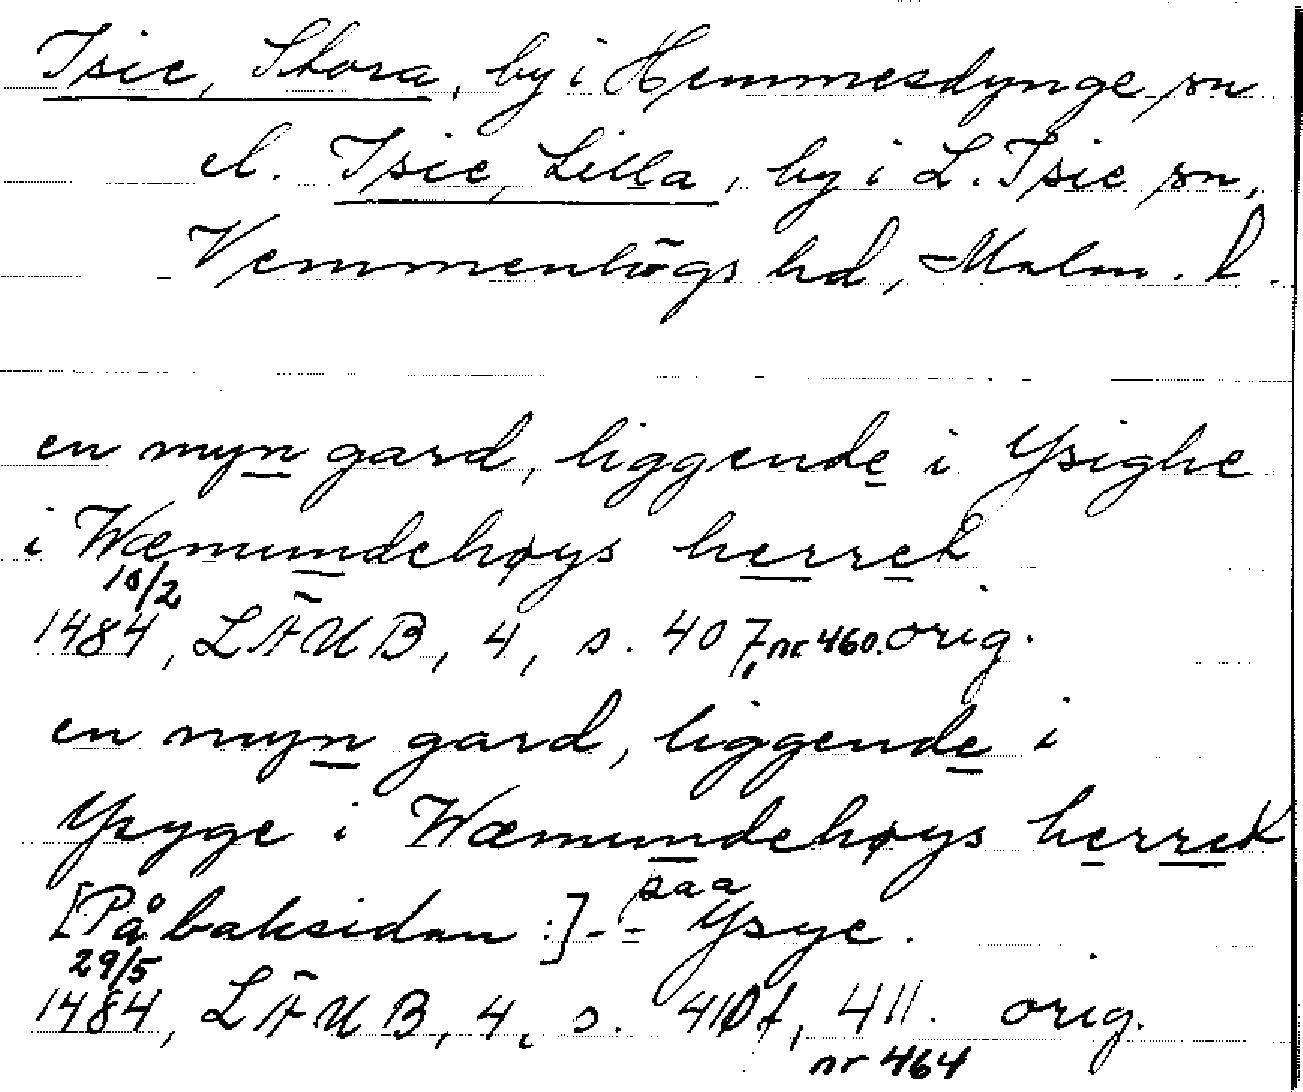 Isie, Stora, by i Hemmesdynge sn
el. Isie, Lilla, by i L. Isie sn,
Vemmenhögs hd, Malm. l.
en myn gard, liggende i Ysighe
i Wæmundehøys herrek
10/2
1484, LÄUB, 4, s. 407, nr 460. orig.
en myn gard, liggende i
Ysyge i Wæmundehøys herrek
[På baksidan :] - - paa Ysye.
29/5
1484, LÄUB, 4, s. 410f, 411. orig.
nr 464